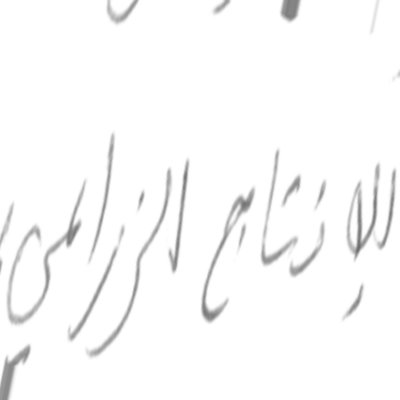 للإنتاج الزراعي